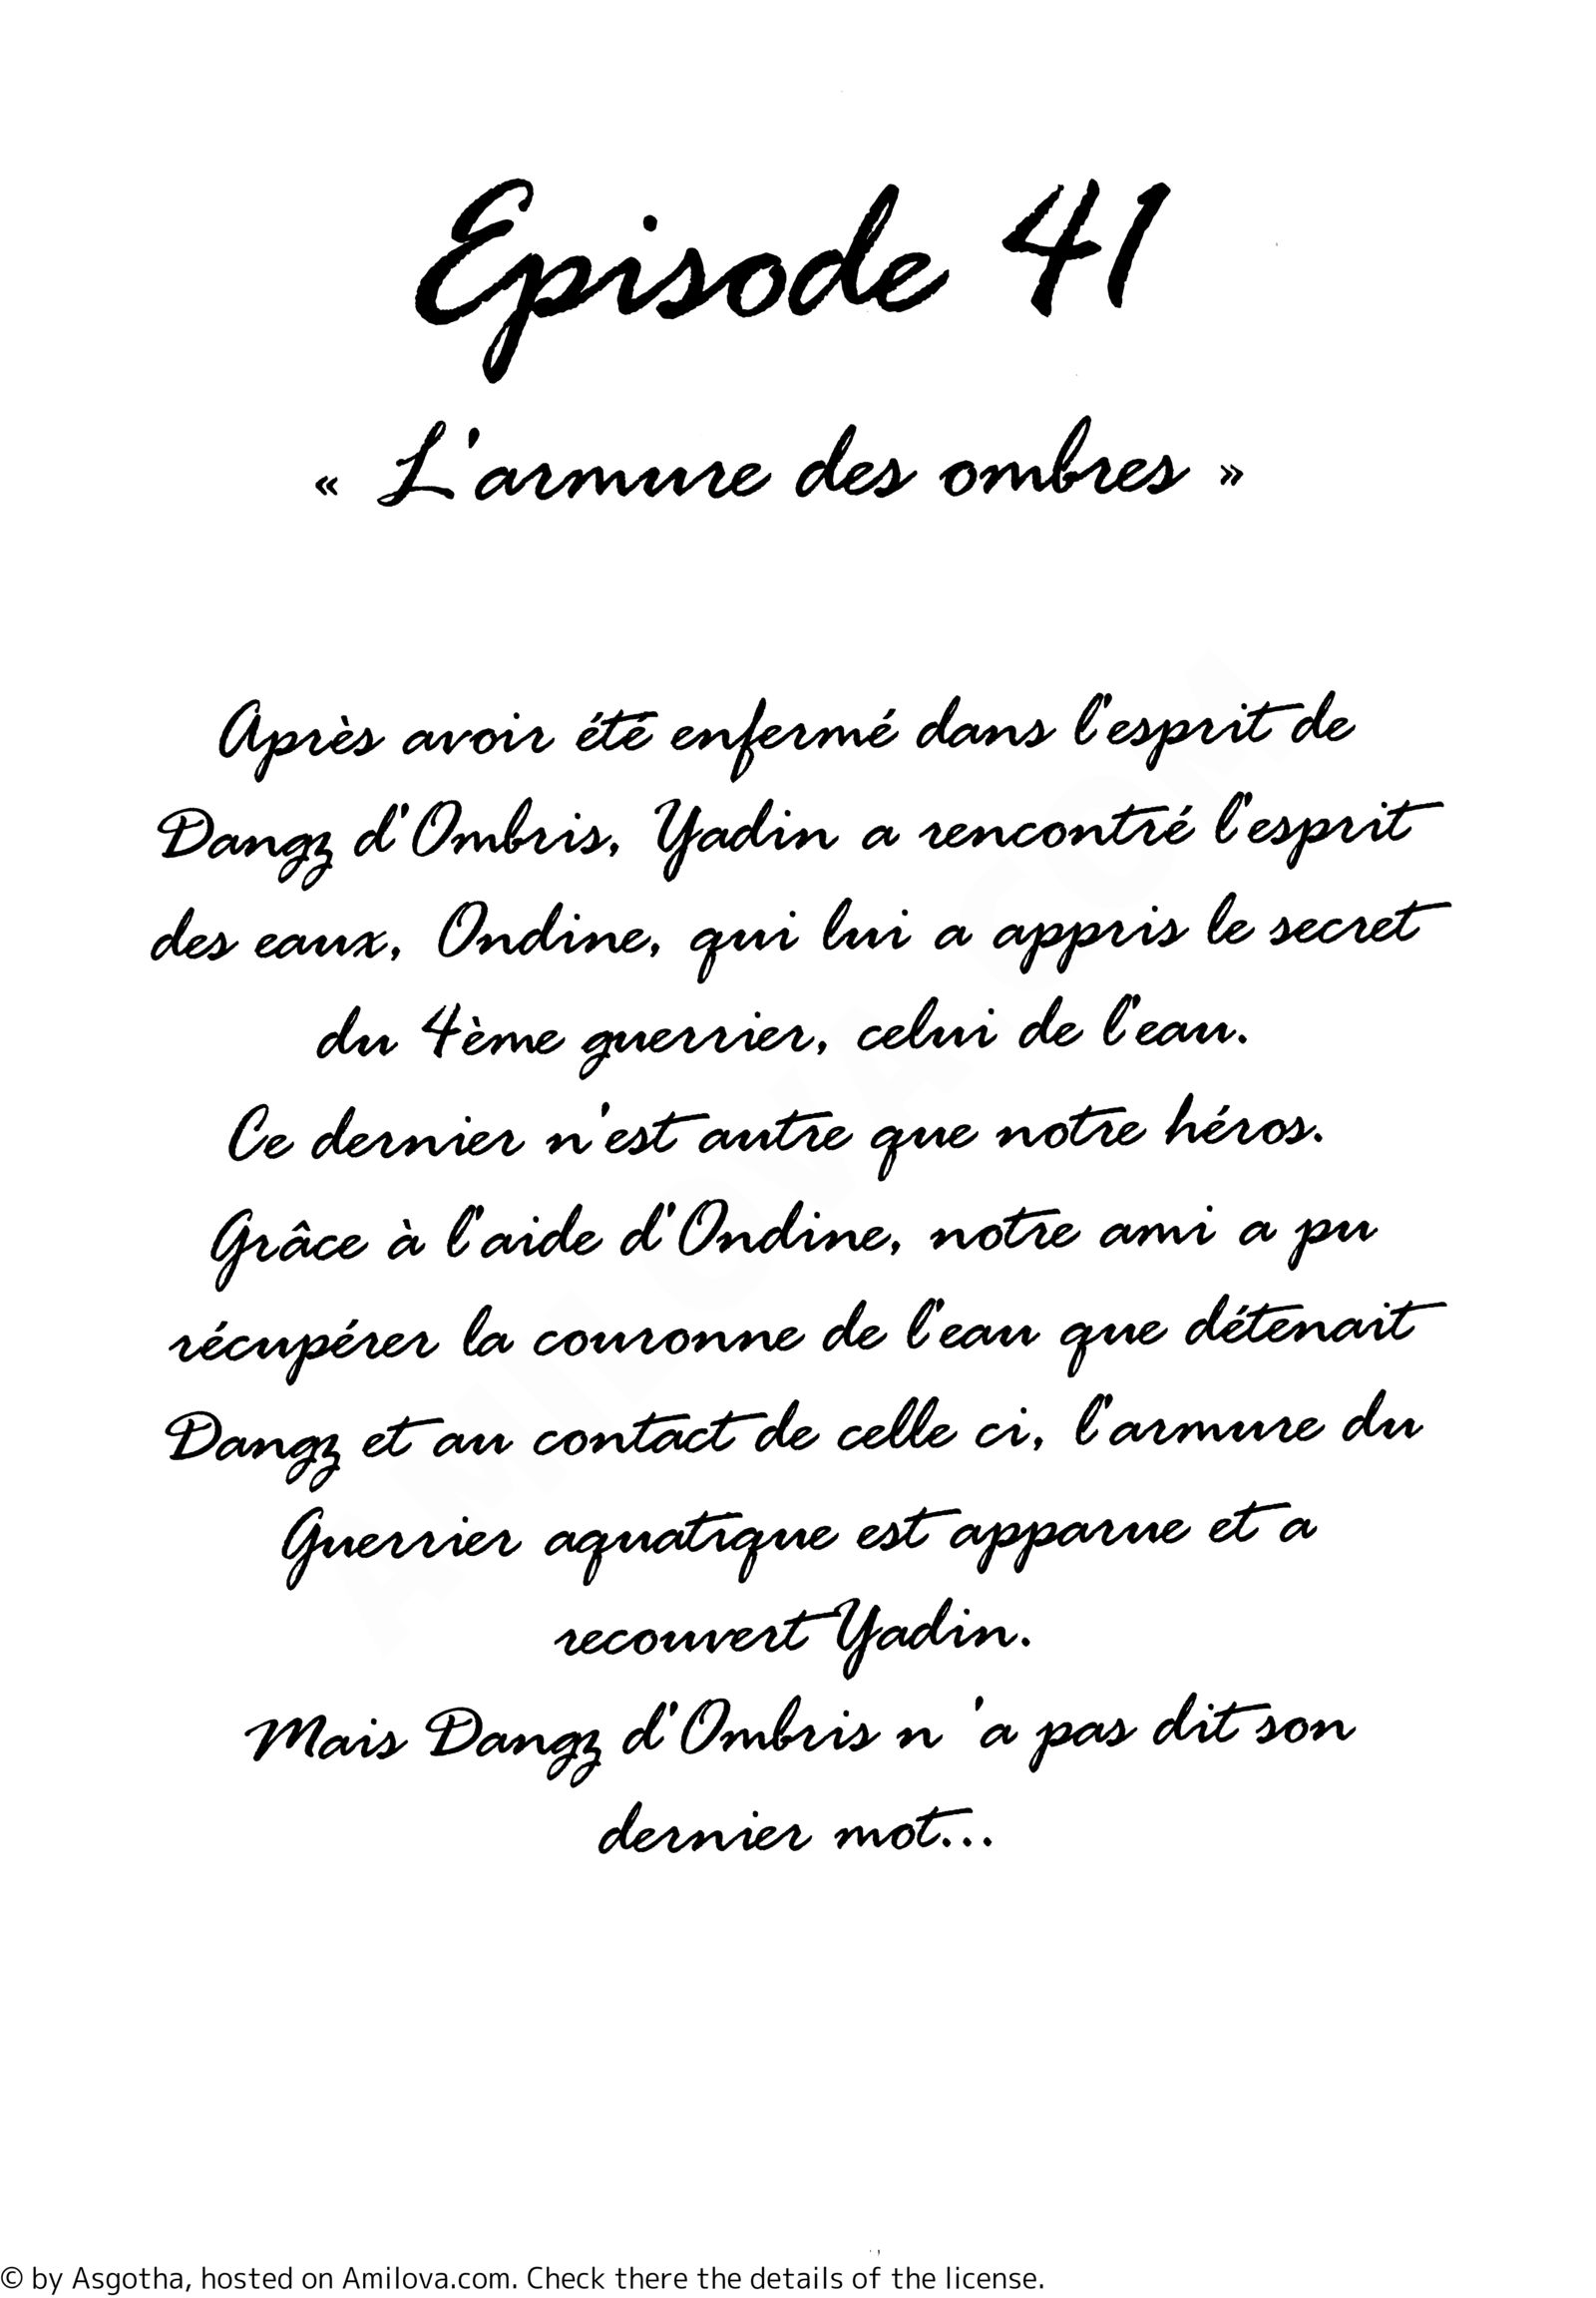 Episode 41
« L'armure des ombres »
Après avoir été enfermé dans l'esprit de
Dangz d'Ombris, Yadin a rencontré l'esprit
des eaux, Ondine, qui lui a appris le secret
du 4ème guerrier, celui de l'eau.
Ce dernier n'est autre que notre héros.
Grâce à l'aide d'Ondine, notre ami a pu
récupérer la couronne de l'eau que détenait
Dangz et au contact de celle ci, l'armure du
Guerrier aquatique est apparue et a
recouvert Yadin.
Mais Dangz d'Ombris n 'a pas dit son
dernier mot...
© by Asgotha, hosted on Amilova.com. Check there the details of the license.